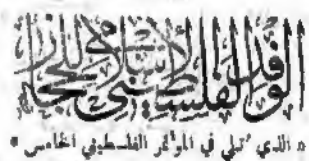 الوفد الفلسطيني الإسلامي للحجاز
« الذي تلي في المؤتمر الفلسطيني الخامس »